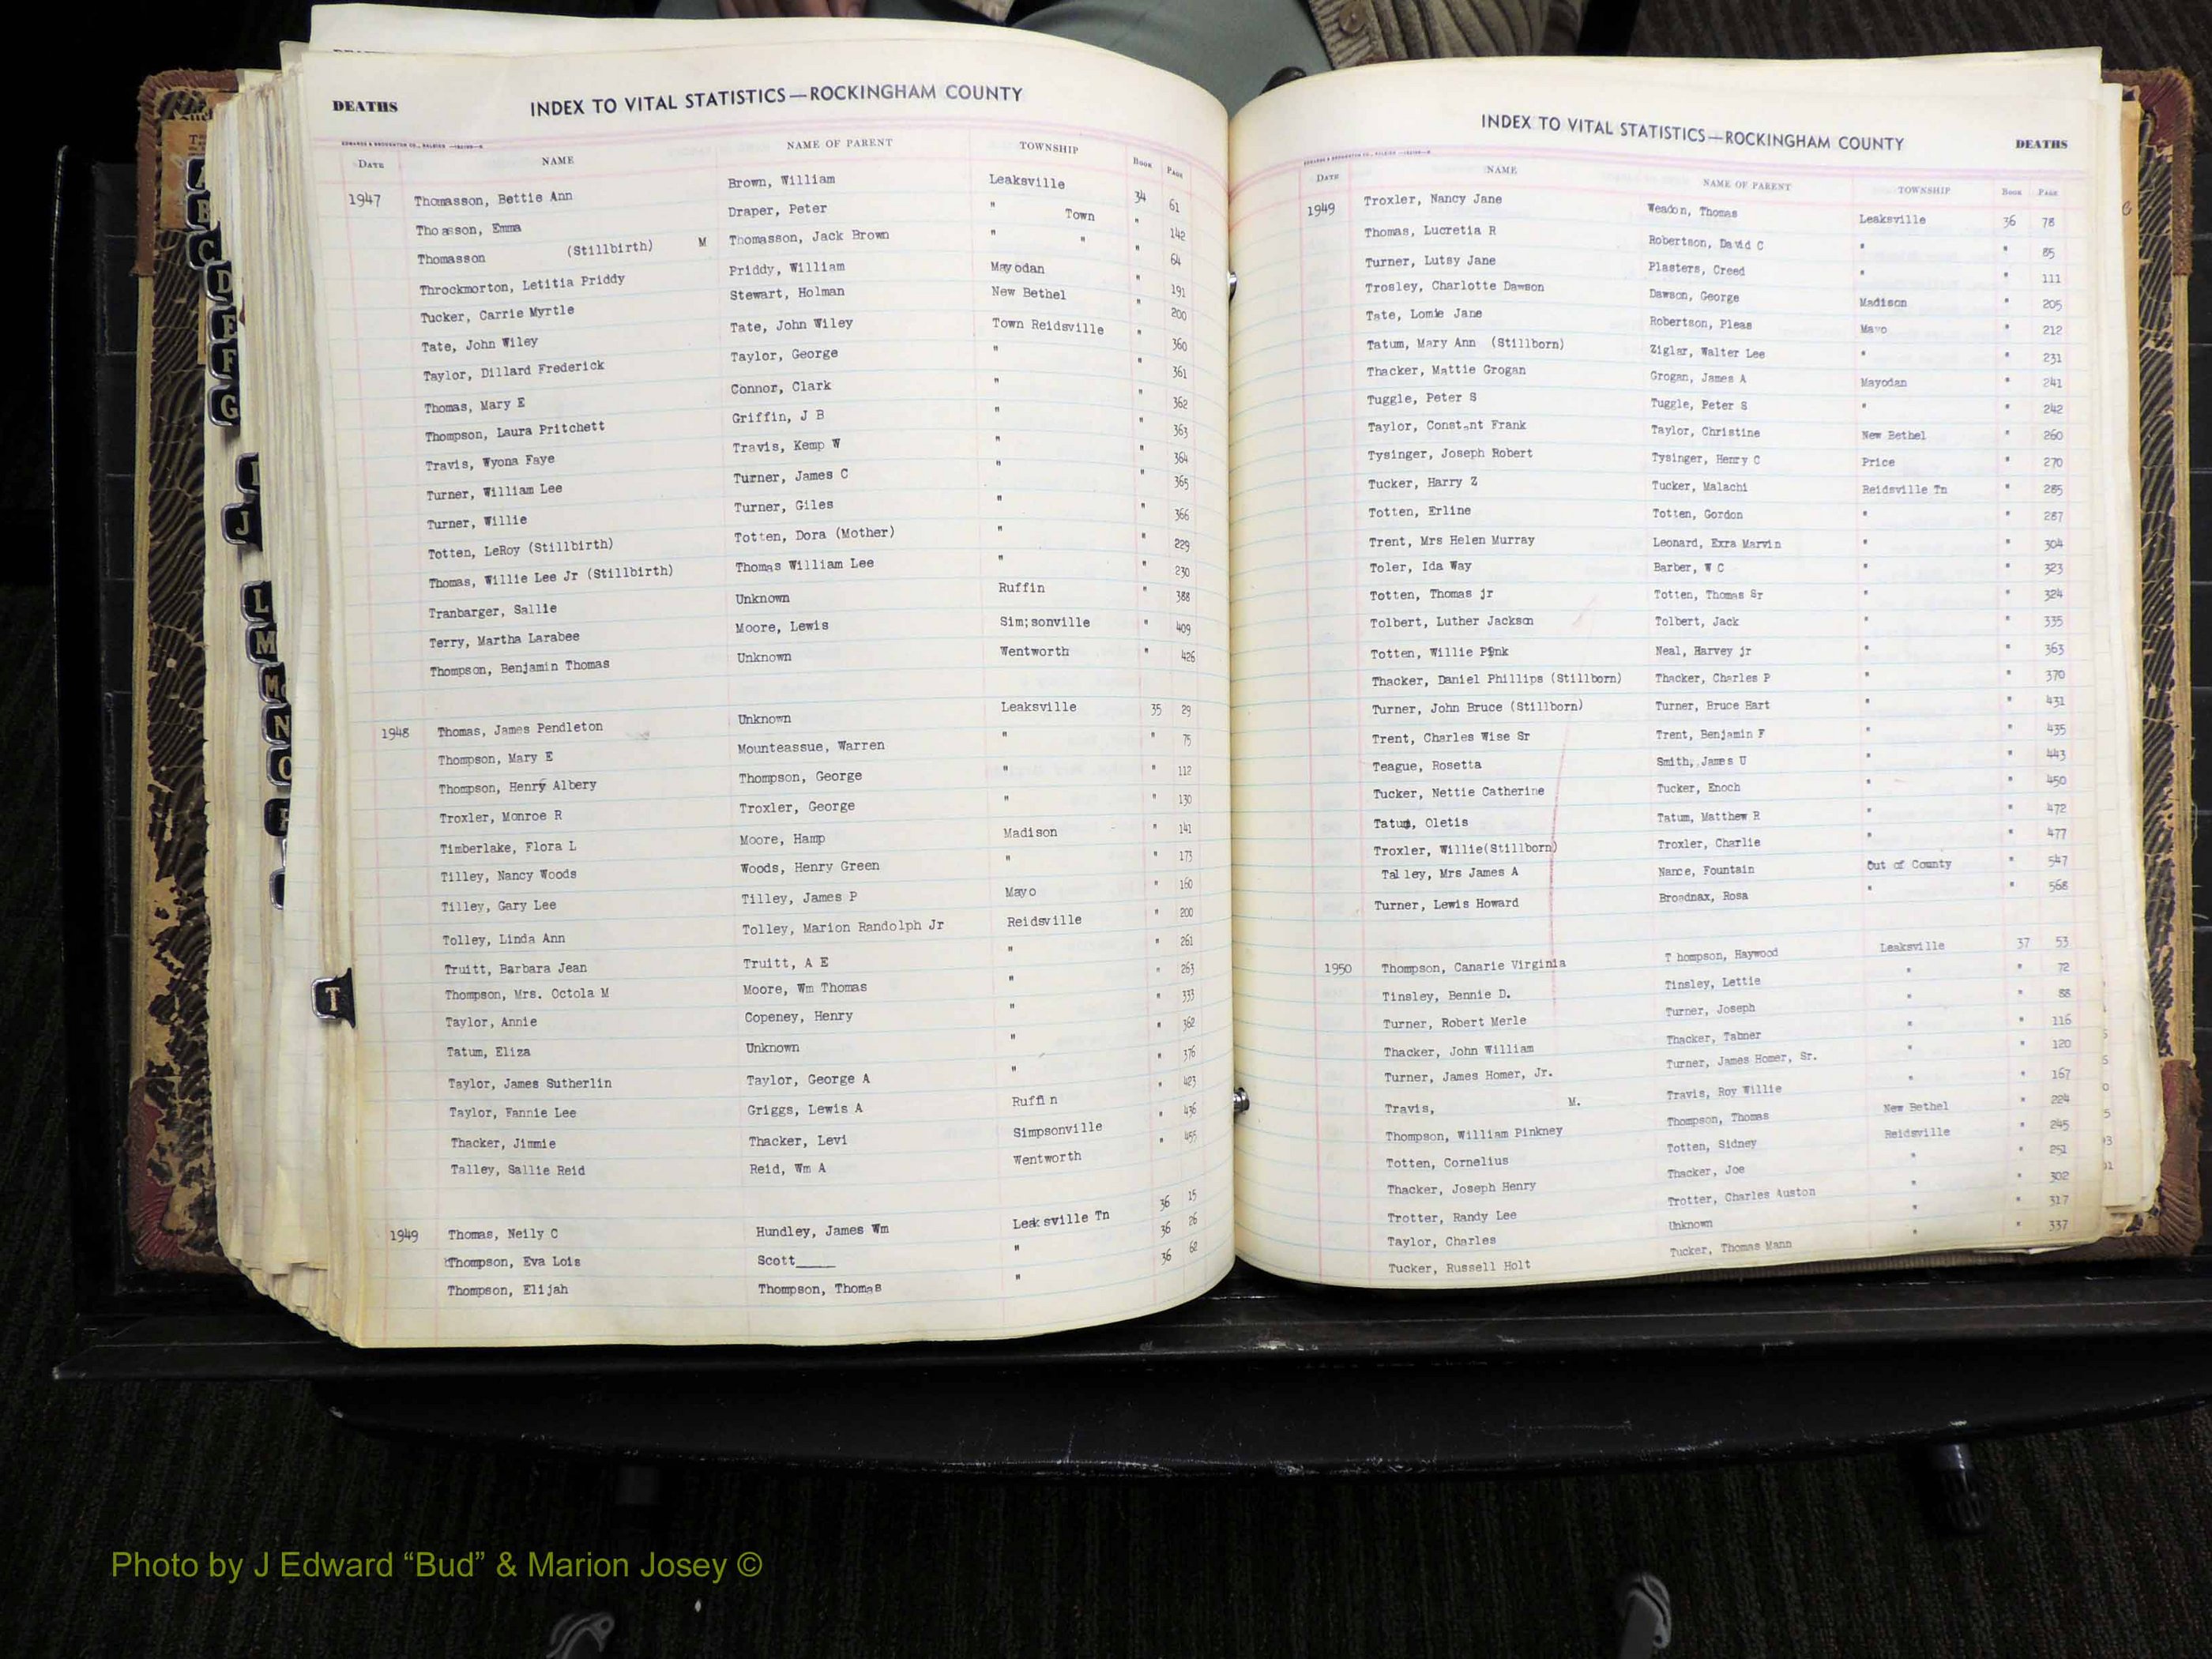 DEATHS INDEX TO VITAL STATISTICS—ROCKINGHAM COUNTY
DATE NAME NAME OF PARENT TOWNSHIP BOOK PAGE
1947 Thomasson, Bettie Ann Brown, William Leaksville 34 61
Tho asson, Emma Draper, Peter " Town " 142
Thomasson (Stillbirth) M Thomasson, Jack Brown " " " 64
Throckmorton, Letitia Priddy Priddy, William Mayodan " 191
Tucker, Carrie Myrtle Stewart, Holman New Bethel " 200
Tate, John Wiley Tate, John Wiley Town Reidsville " 360
Taylor, Dillard Frederick Taylor, George " " 361
Thomas, Mary E Connor, Clark " " 362
Thompson, Laura Pritchett Griffin, J B " " 363
Travis, Wyona Faye Travis, Kemp W " " 364
Turner, William Lee Turner, James C " " 365
Turner, Willie Turner, Giles " " 366
Totten, LeRoy (Stillbirth) Totten, Dora (Mother) " " 229
Thomas, Willie Lee Jr (Stillbirth) Thomas William Lee " " 230
Tranbarger, Sallie Unknown Ruffin " 388
Terry, Martha Larabee Moore, Lewis Sim;sonville " 409
Thompson, Benjamin Thomas Unknown Wentworth " 426
1948 Thomas, James Pendleton Unknown Leaksville 35 29
Thompson, Mary E Mounteassue, Warren " " 75
Thompson, Henry Albery Thompson, George " " 112
Troxler, Monroe R Troxler, George " " 130
Timberlake, Flora L Moore, Hamp Madison " 141
Tilley, Nancy Woods Woods, Henry Green " " 173
Tilley, Gary Lee Tilley, James P Mayo " 160
Tolley, Linda Ann Tolley, Marion Randolph Jr Reidsville " 200
Truitt, Barbara Jean Truitt, A E " " 261
Thompson, Mrs. Octola M Moore, Wm Thomas " " 263
Taylor, Annie Copeney, Henry " " 333
Tatum, Eliza Unknown " " 362
Taylor, James Sutherlin Taylor, George A " " 376
Taylor, Fannie Lee Griggs, Lewis A Ruffin " 423
Thacker, Jimmie Thacker, Levi Simpsonville " 436
Talley, Sallie Reid Reid, Wm A Wentworth " 455
1949 Thomas, Neily C Hundley, James Wm Leaksville Tn 36 15
Thompson, Eva Lois Scott_____ " 36 26
Thompson, Elijah Thompson, Thomas " 36 62
INDEX TO VITAL STATISTICS—ROCKINGHAM COUNTY DEATHS
DATE NAME NAME OF PARENT TOWNSHIP BOOK PAGE
1949 Troxler, Nancy Jane Weadon, Thomas Leaksville 36 78
Thomas, Lucretia R Robertson, David C " " 85
Turner, Lutsy Jane Plasters, Creed " 111
Trosley, Charlotte Dawson Dawson, George Madison " 205
Tate, Lomie Jane Robertson, Pleas Mayo " 212
Tatum, Mary Ann (Stillborn) Ziglar, Walter Lee " " 231
Thacker, Mattie Grogan Grogan, James A Mayodan " 241
Tuggle, Peter S Tuggle, Peter S " " 242
Taylor, Constant Frank Taylor, Christine New Bethel " 260
Tysinger, Joseph Robert Tysinger, Henry C Price " 270
Tucker, Harry Z Tucker, Malachi Reidsville Tn " 285
Totten, Erline Totten, Gordon " " 287
Trent, Mrs Helen Murray Leonard, Exra Marvin " " 304
Toler, Ida Way Barber, W C " " 323
Totten, Thomas jr Totten, Thomas Sr " " 324
Tolbert, Luther Jackson Tolbert, Jack " " 335
Totten, Willie Pink Neal, Harvey jr " " 363
Thacker, Daniel Phillips (Stillborn) Thacker, Charles P " " 370
Turner, John Bruce (Stillborn) Turner, Bruce Hart " " 431
Trent, Charles Wise Sr Trent, Benjamin F " " 435
Teague, Rosetta Smith, James U " " 443
Tucker, Nettie Catherine Tucker, Enoch " " 450
Tatum, Oletis Tatum, Matthew R " " 472
Troxler, Willie(Stillborn) Troxler, Charlie " " 477
Talley, Mrs James A Nance, Fountain Out of County " 547
Turner, Lewis Howard Broadnax, Rosa " " 568
1950 Thompson, Canarie Virginia T hompson, Haywood Leaksville 37 53
Tinsley, Bennie D. Tinsley, Lettie " " 72
Turner, Robert Merle Turner, Joseph " " 88
Thacker, John William Thacker, Tabner " " 116
Turner, James Homer, Jr. Turner, James Homer, Sr. " " 120
Travis, M. Travis, Roy Willie " " 167
Thompson, William Pinkney Thompson, Thomas New Bethel " 224
Totten, Cornelius Totten, Sidney Reidsville " 245
Thacker, Joseph Henry Thacker, Joe " " 251
Trotter, Randy Lee Trotter, Charles Auston " " 302
Taylor, Charles Unknown " " 317
Tucker, Russell Holt Tucker, Thomas Mann " " 337
A
B
C
D
E
F
G
J
L
M
Mc
N
O
T
Photo by J Edward “Bud” & Marion Josey ©